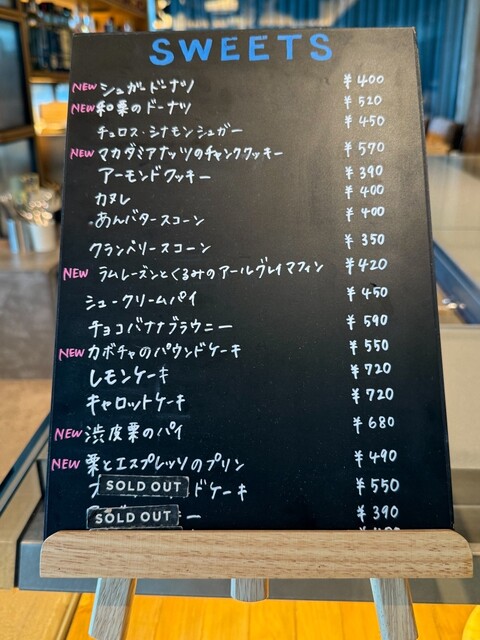 SWEETS
NEW シュガードーナツ ¥400
NEW 和栗のドーナツ ¥520
チュロス・シナモンシュガー ¥450
NEW マカダミアナッツのチャンククッキー ¥570
アーモンドクッキー ¥390
カヌレ ¥400
あんバタースコーン ¥400
クランベリースコーン ¥350
NEW ラムレーズンとくるみのアールグレイマフィン ¥420
シュークリームパイ ¥450
チョコバナナブラウニー ¥590
NEW カボチャのパウンドケーキ ¥550
レモンケーキ ¥720
キャロットケーキ ¥720
NEW 渋皮栗のパイ ¥680
NEW 栗とエスプレッソのプリン ¥490
SOLD OUT ドケーキ ¥550
SOLD OUT ー ¥390